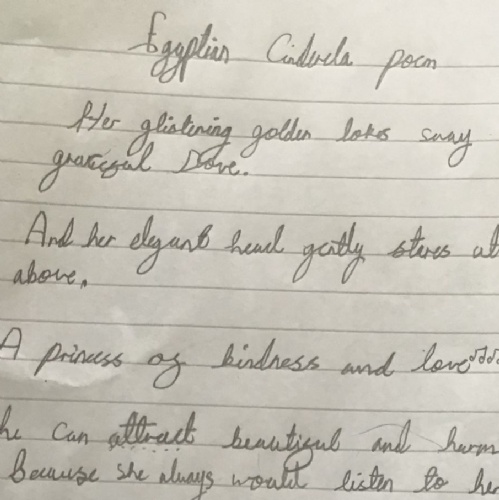 Egyptian Cinderela poem
Her glistening golden lokes sway
graceful Dove.
And her elegant head gently stares at
above.
A princess of kindness and love
he can attract beautiful and harm
Because she always would listen to he